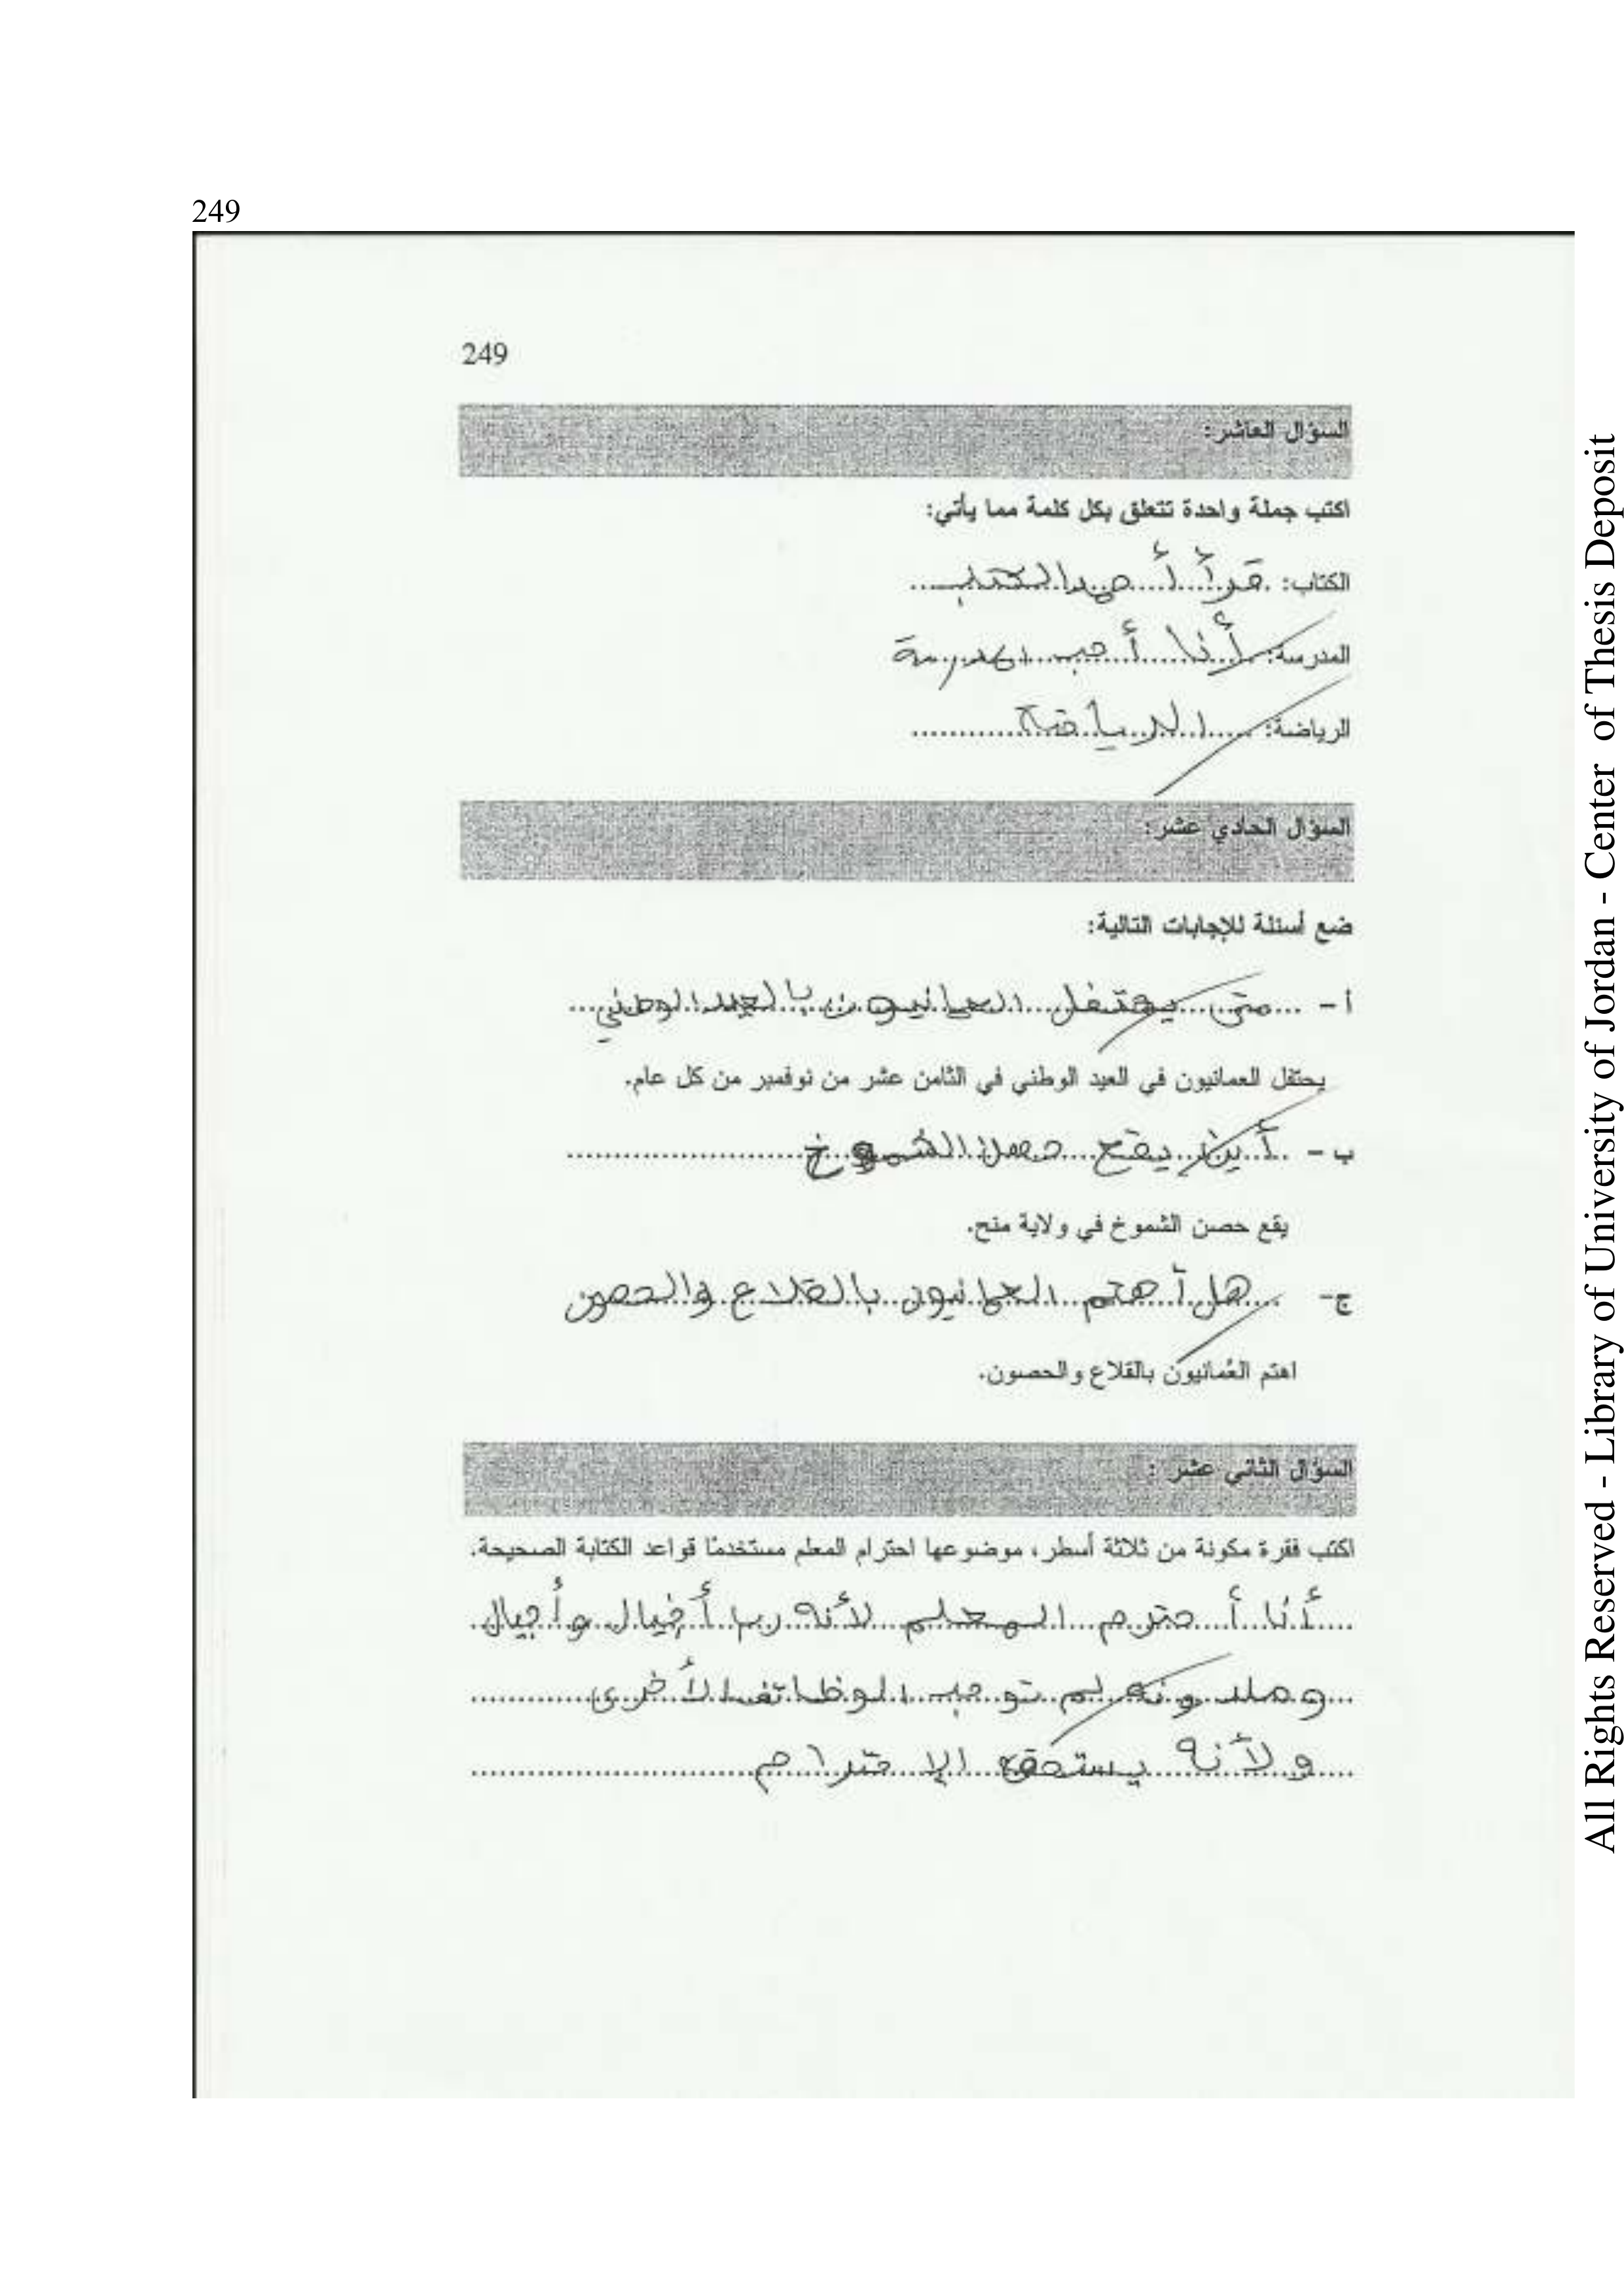 249
249
السؤال العاشر:
اكتب جملة واحدة تتعلق بكل كلمة مما يأتي:
الكتاب: قرأ أحمد الكتب
المدرسة: أنا أحب المدرسة
الرياضة: الرياضة
السؤال الحادي عشر:
ضع أسئلة للإجابات التالية:
أ - متى يحتفل العمانيون بالعيد الوطني
يحتفل العمانيون في العيد الوطني في الثامن عشر من نوفمبر من كل عام.
ب - أين يقع حصن الشموخ
يقع حصن الشموخ في ولاية منح.
ج- هل أهتم العمانيون بالقلاع والحصون
اهتم العُمانيون بالقلاع والحصون.
السؤال الثاني عشر :
اكتب فقرة مكونة من ثلاثة أسطر، موضوعها احترام المعلم مستخدمًا قواعد الكتابة الصحيحة.
أنا أحترم المعلم لأنه ربا أخيال وأجيال
لم توجب الوظائف الأخرى
ولأنه يستحق الإحترام
All Rights Reserved - Library of University of Jordan - Center of Thesis Deposit